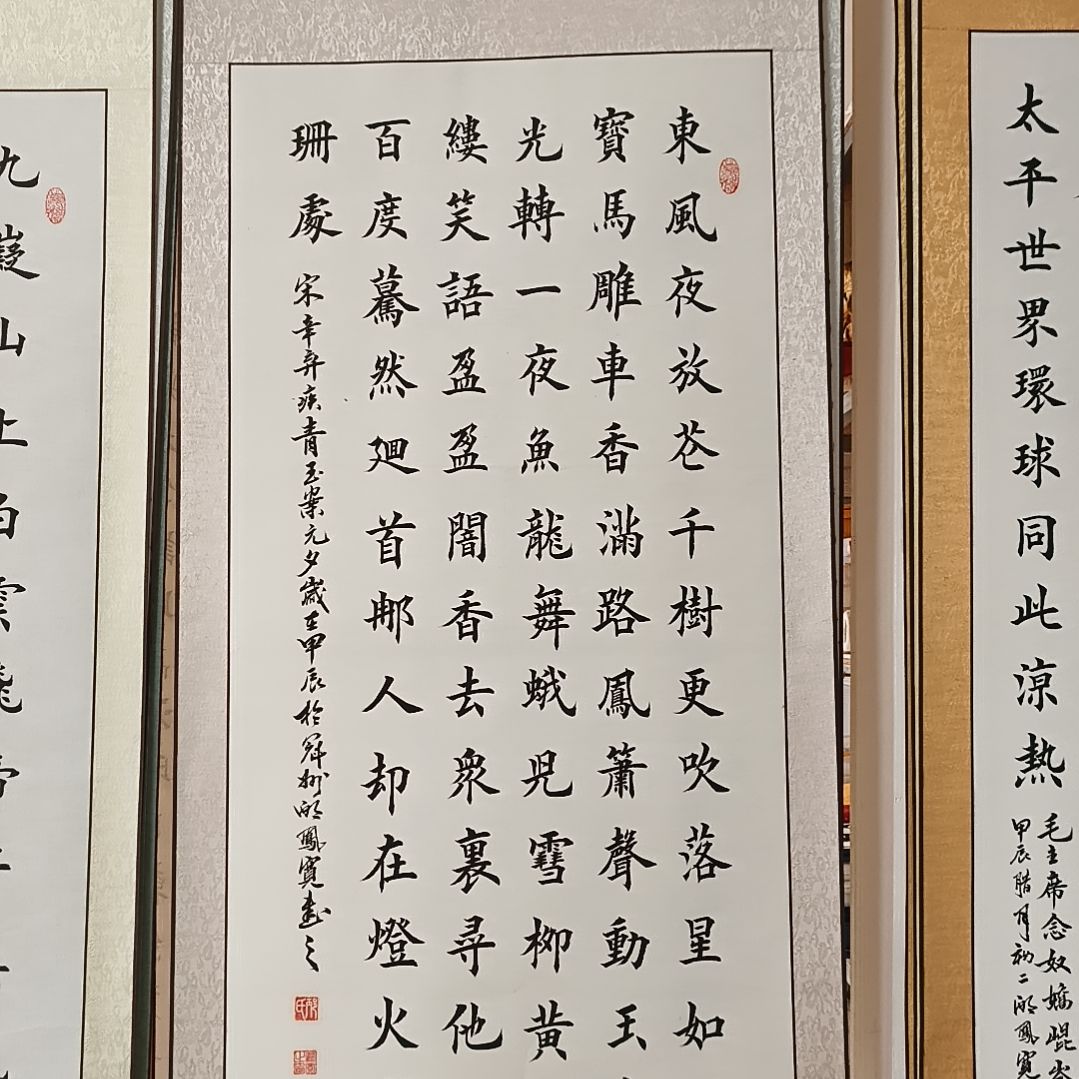 太平世界環球同此涼熱
毛主席念奴嬌崑
甲辰腊月初二鳳寬
東風夜放花千樹更吹落星如
寶馬雕車香滿路鳳簫聲動玉
光轉一夜魚龍舞蛾兒雪柳黃
縷笑語盈盈闇香去衆裏尋他
百度驀然廻首那人却在燈火
珊處
宋辛弃疾青玉案元夕歲在甲辰於鳳寬書之
九嶷山上白雲飛帝子